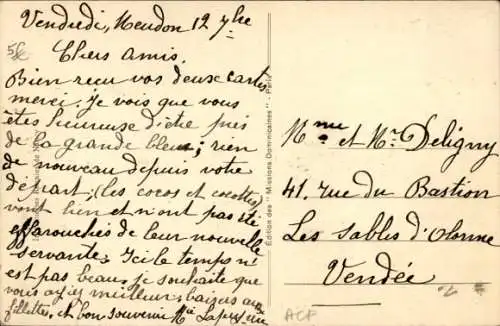 Vendredi, Meudon 12 7bre
Chers amis.
Bien reçu vos deux cartes
merci. Je vois que vous
êtes heureuse d'être près
de la grande bleue; rien
de nouveau depuis votre
départ; (les cocos et cocottes)
vont bien et n'ont pas été
effarouchés de leur nouvelle
servante. Ici le temps n'
est pas beau, je souhaite que
vous ayez meilleur, baisers aux
fillettes, et bon souvenir
Édition des "Missions Dominicaines" - Paris
Mme et Mr Deligny
41. rue du Bastion
Les Sables d'Olonne
Vendée
ACP